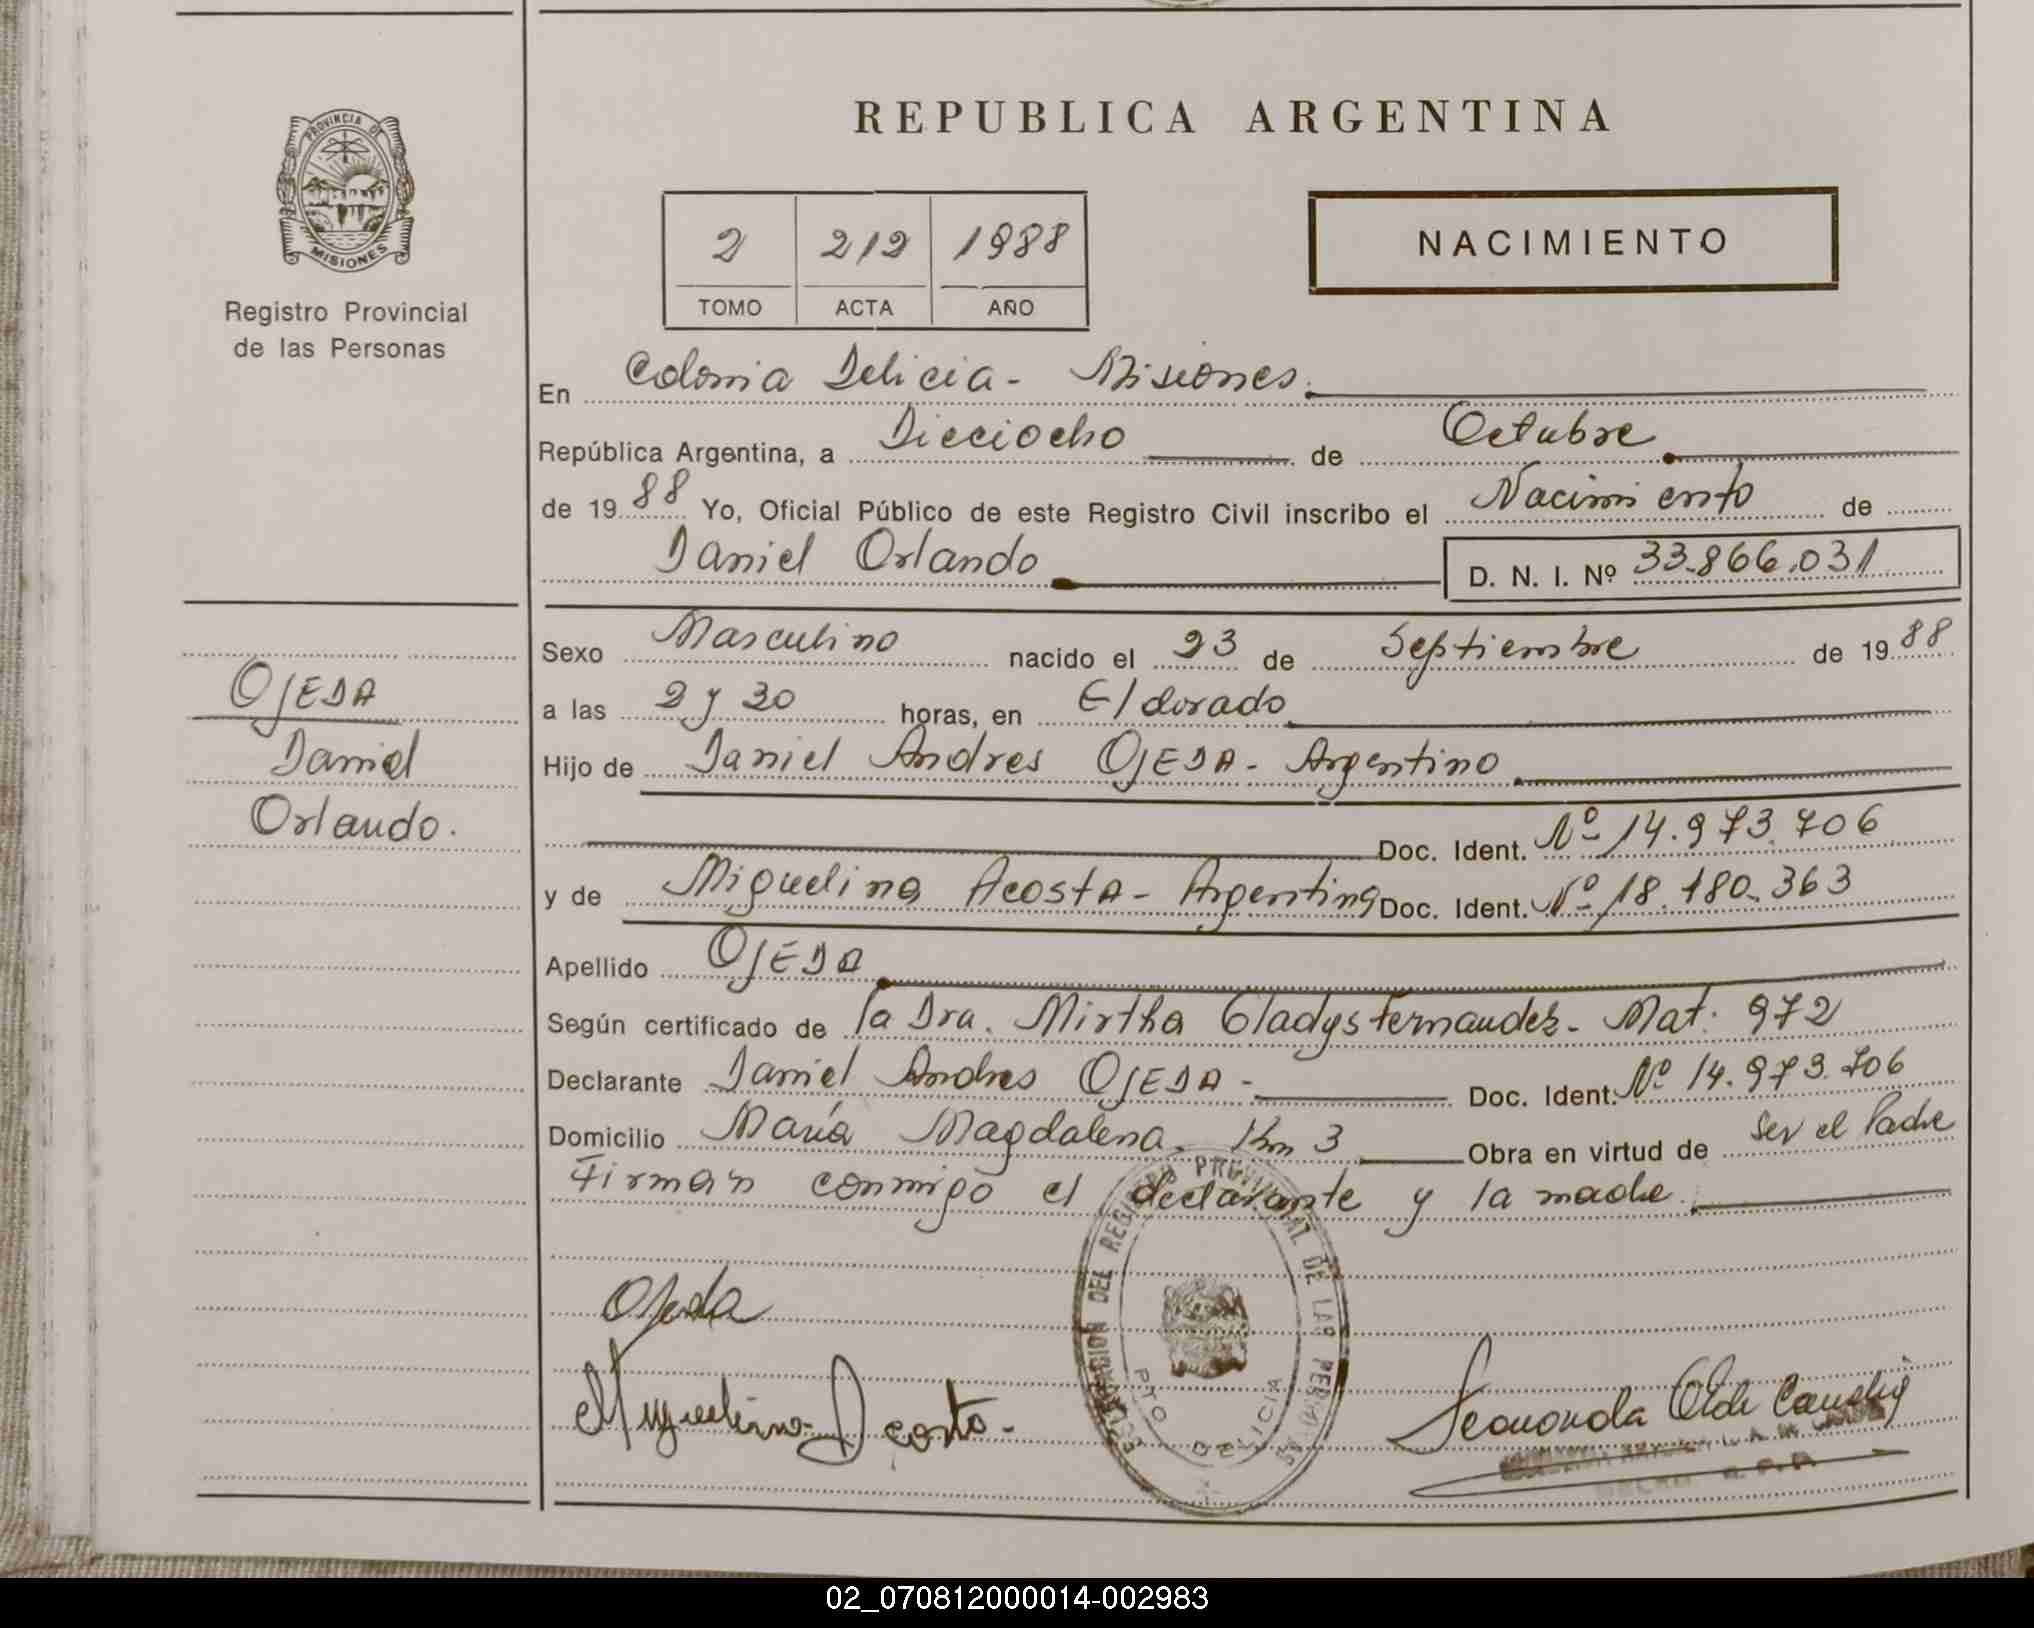 REPUBLICA ARGENTINA
PROVINCIA DE
MISIONES
Registro Provincial
de las Personas
2 212 1988
TOMO ACTA AÑO
NACIMIENTO
En Colonia Delicia - Misiones.
República Argentina, a Dieciocho de Octubre
de 19 88 Yo, Oficial Público de este Registro Civil inscribo el Nacimiento de
Daniel Orlando D. N. I. Nº 33.866.031
OJEDA
Daniel
Orlando.
Sexo Masculino nacido el 23 de Septiembre de 19 88
a las 2 y 30 horas, en Eldorado
Hijo de Daniel Andres OJEDA - Argentino
Doc. Ident. Nº 14.973.706
y de Miguelina Acosta - Argentina Doc. Ident. Nº 18.180.363
Apellido OJEDA
Según certificado de la Dra. Mirtha Gladys Fernandez - Mat. 972
Declarante Daniel Andres OJEDA - Doc. Ident. Nº 14.973.706
Domicilio María Magdalena. Km 3 Obra en virtud de ser el Padre
Firman conmigo el declarante y la madre.
DEL REGISTRO PROVINCIAL DE LAS PERSONAS
PTO DELICIA
Ojeda
Miguelina Acosta -
02_070812000014-002983